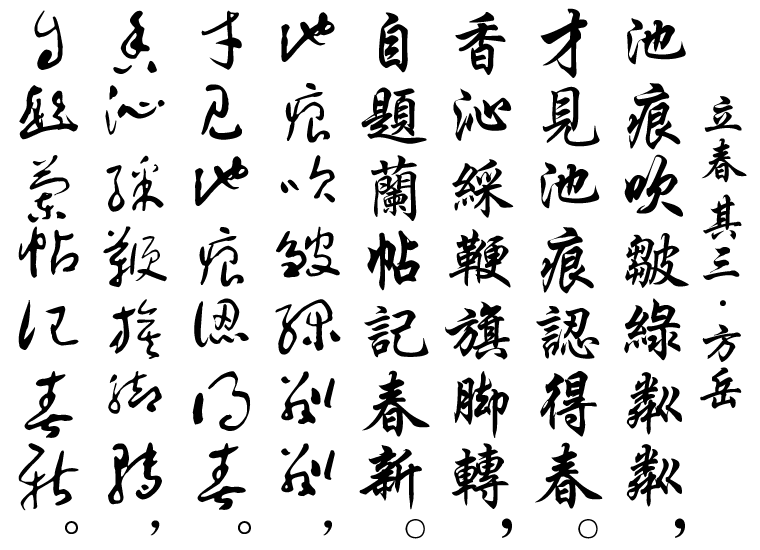 立春其三·方岳
池痕吹皺綠粼粼，
才見池痕認得春。
香沁綵鞭旗脚轉，
自題蘭帖記春新。
池痕吹皺綠粼粼，
才見池痕認得春。
香沁綵鞭旗脚轉，
自題蘭帖記春新。